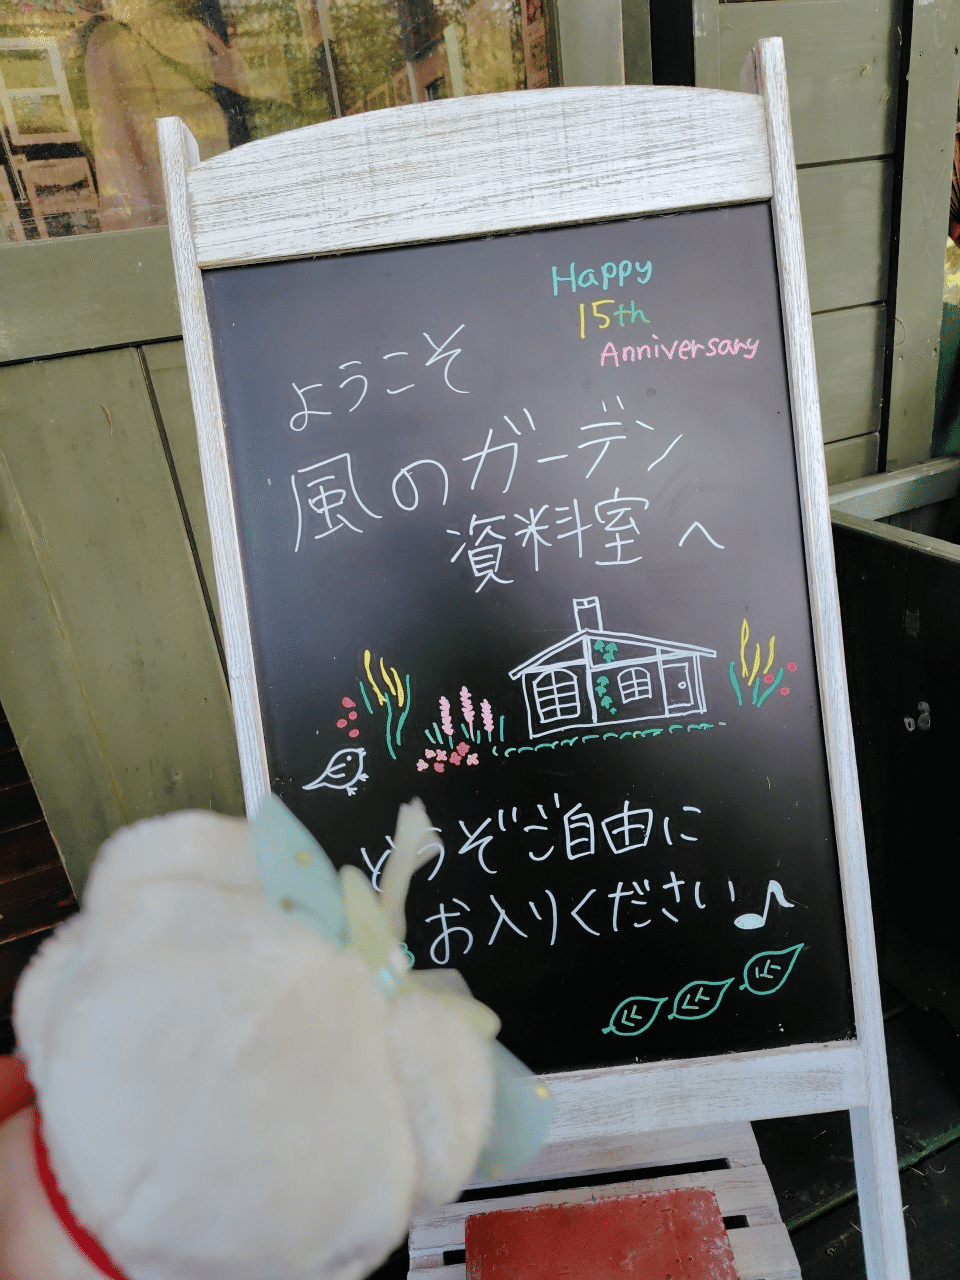 Happy
15th
Anniversary
ようこそ
風のガーデン
資料室へ
どうぞご自由に
お入りください♪